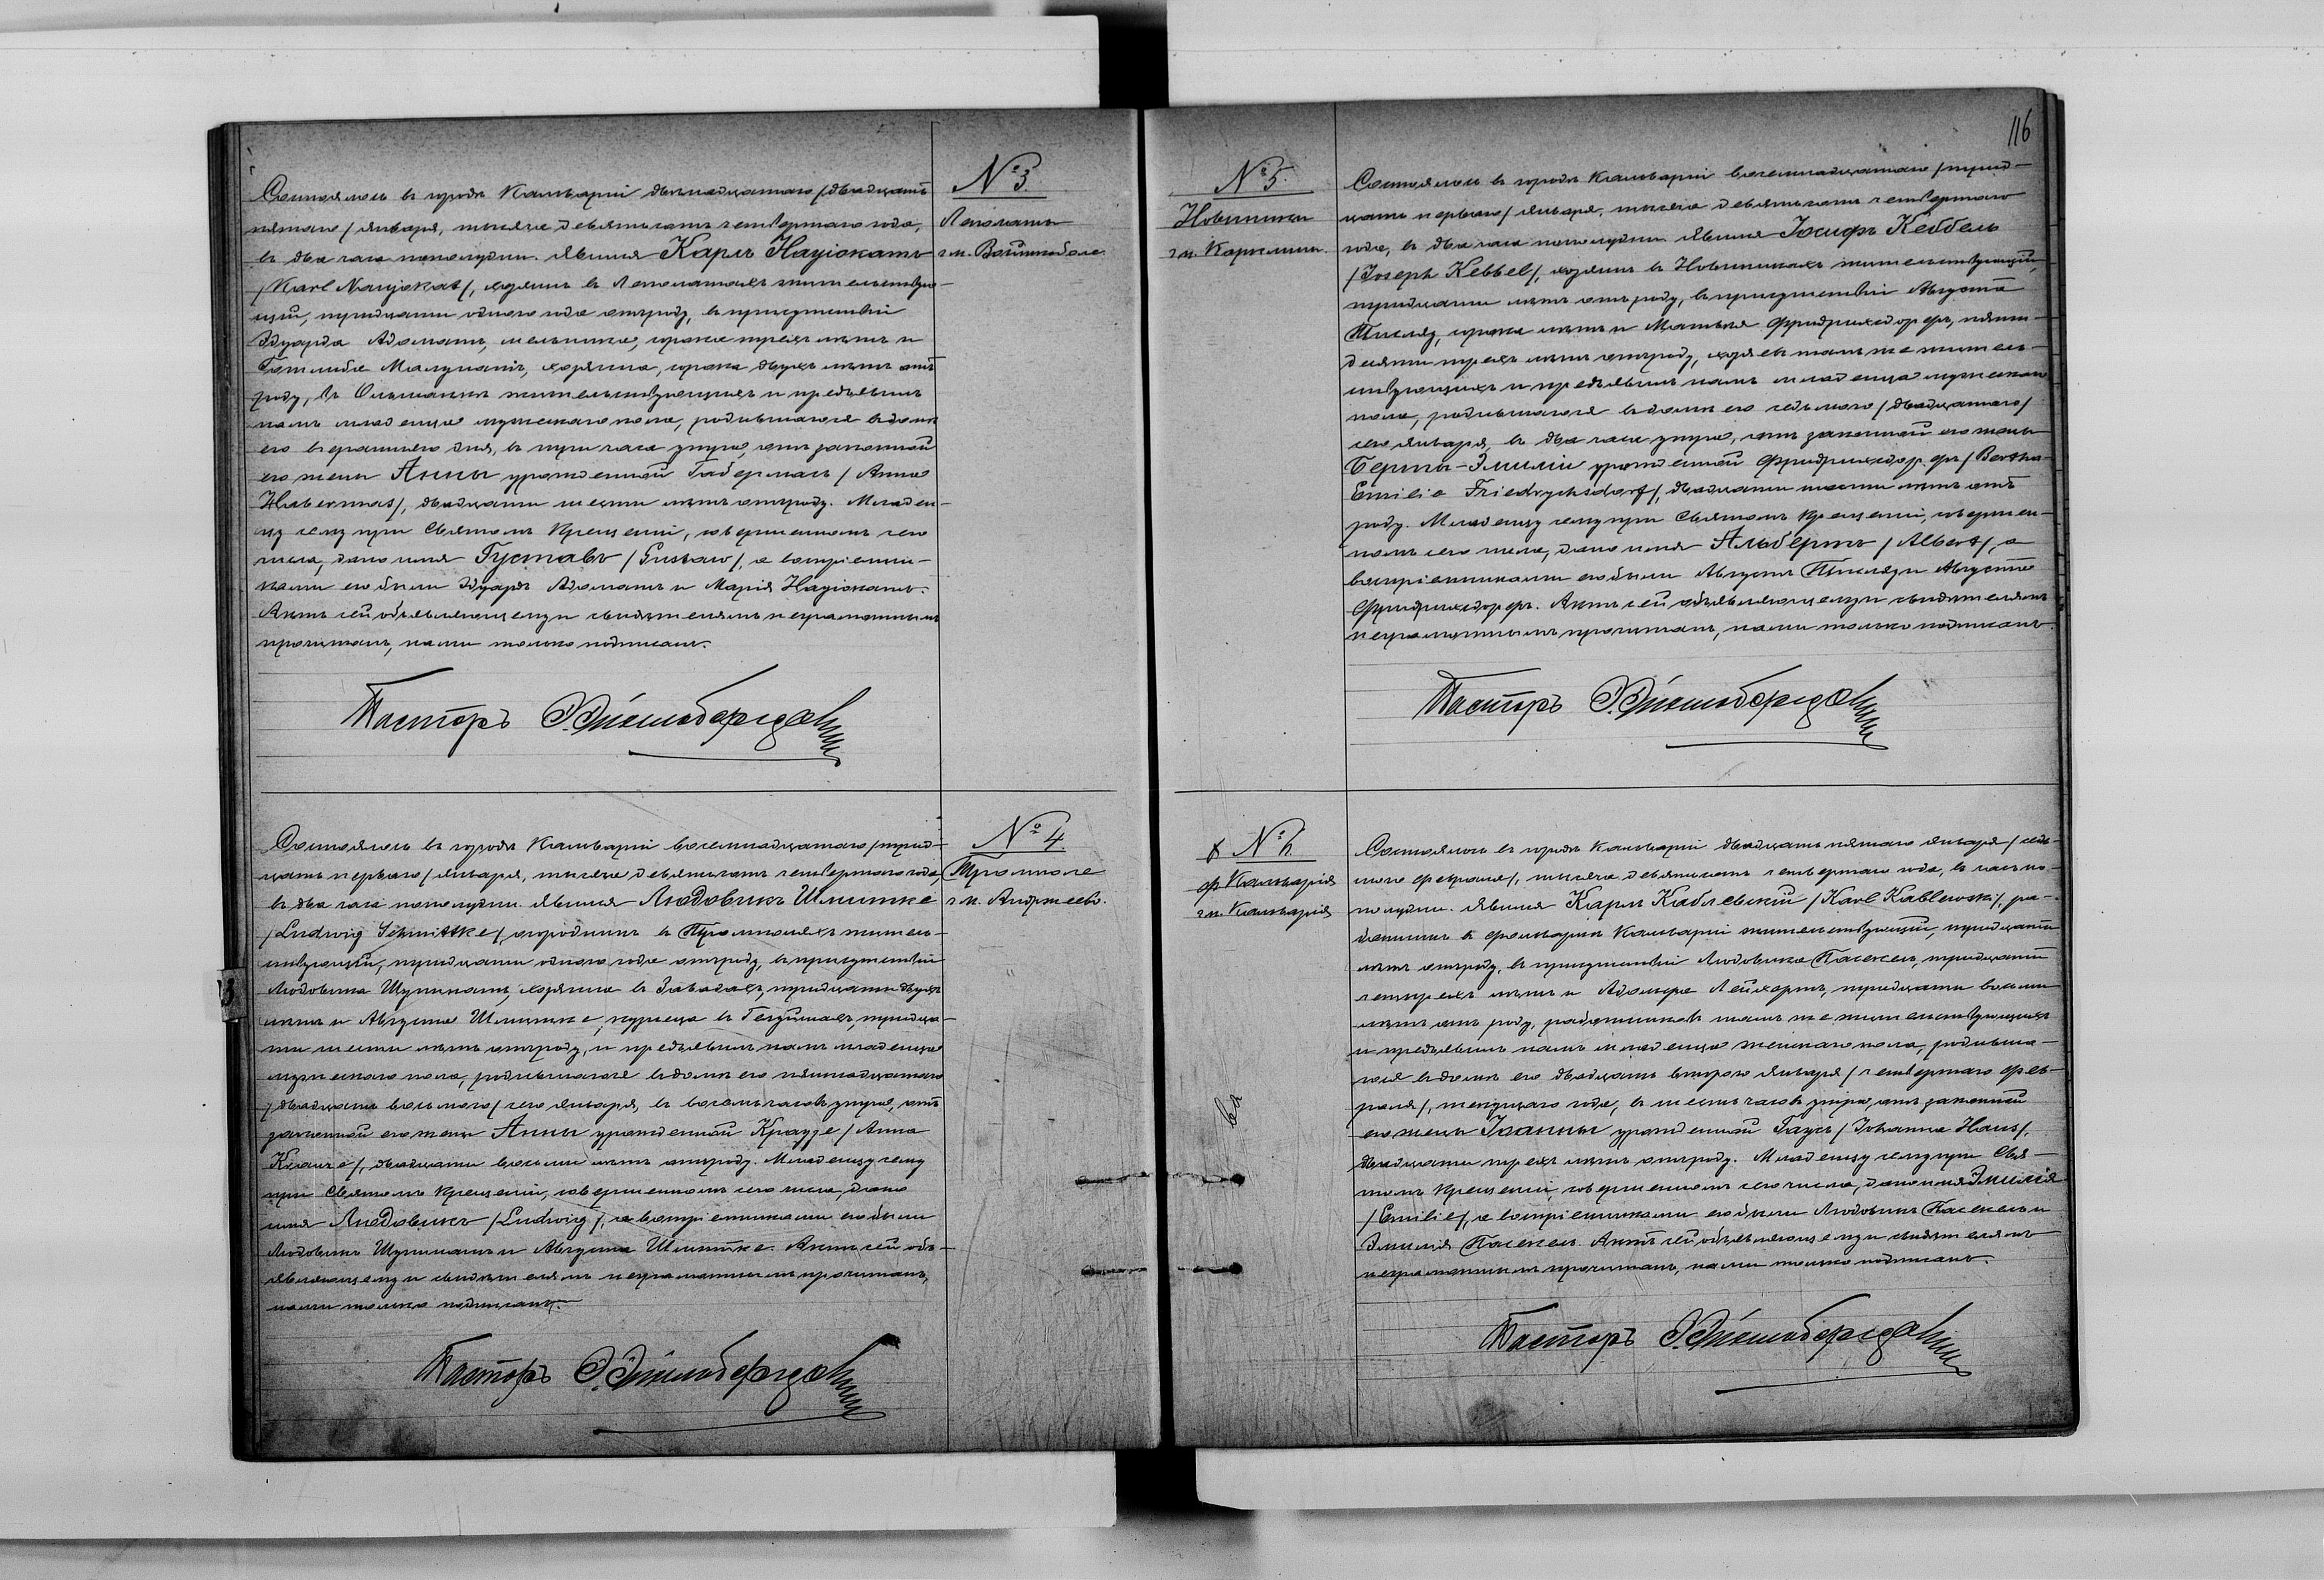 № 3
Состоялось въ городѣ Кальваріи двѣнадцатаго /двадцать
пятаго/ января, тысяча девятьсотъ четвертаго года,
въ два часа пополудни. Явился Карлъ Науіокатъ
/Karl Naujokat/, хозяинъ въ жительствую-
щій, тридцати одного года отъ роду, въ присутствіи
Эдуарда Адоматъ, мельника, сорока трехъ лѣтъ и
Готлиба хозяина, сорока двухъ лѣтъ отъ
роду, въ жительствующихъ и предъявилъ
намъ младенца мужескаго пола, родившагося въ домѣ
его вчерашняго дня, въ три часа утра, отъ законной
его жены Анны урожденной Габермасъ /Anna
Habermas/, двадцати шести лѣтъ отъ роду. Младен-
цу сему при Святомъ Крещеніи, совершенномъ сего
числа, дано имя Густавъ /Gustaw/, а воспріемни-
ками его были Эдуардъ Адоматъ и Марія Науіокатъ.
Актъ сей объявляющему и свидѣтелямъ неграмотнымъ
прочитанъ, нами только подписанъ.
Пасторъ
№ 4.
гм. Андржеево.
Состоялось въ городѣ Кальваріи восемнадцатаго /трид-
цать перваго/ января, тысяча девятьсотъ четвертаго года,
въ два часа пополудни. Явился Людовикъ Шмитке
/Ludwig Schmittke/, огродникъ въ житель-
ствующій, тридцати одного года отъ роду, въ присутствіи
Людовика хозяина въ Завадахъ, тридцати двухъ
лѣтъ и Августа Шмитке, въ тридца-
ти шести лѣтъ отъ роду, и предъявилъ намъ младенца
мужескаго пола, родившагося въ домѣ его пятнадцатаго
/двадцать восьмого/ сего января, въ восемь часовъ утра, отъ
законной его жены Анны урожденной Краузе /Anna
Krause/, двадцати восьми лѣтъ отъ роду. Младенцу сему
при Святомъ Крещеніи, совершенномъ сего числа, дано
имя Людовикъ /Ludwig/, а воспріемниками его были
Людовикъ и Августа Шмитке. Актъ сей объ-
являющему и свидѣтелямъ неграмотнымъ прочитанъ,
нами только подписанъ.
Пасторъ
116
№ 5.
Новиники
Состоялось въ городѣ Кальваріи восемнадцатаго /трид-
цать перваго/ января, тысяча девятьсотъ четвертаго
года, въ два часа пополудни. Явился Іосифъ Кеббель
/Joseph Kebbel/, хозяинъ въ Новиникахъ жительствующій,
тридцати лѣтъ отъ роду, въ присутствіи Августа
сорока лѣтъ и Фридрихсдорфъ, пяти-
десяти трехъ лѣтъ отъ роду, хозяевъ тамъ же житель-
ствующихъ и предъявилъ намъ младенца мужескаго
пола, родившагося въ домѣ его седьмого /двадцатаго/
сего января, въ два часа утра, отъ законной его жены
Берты-Эмиліи урожденной Фридрихсдорфъ /Bertha-
Emilie Friedrychsdorf/, двадцати шести лѣтъ отъ
роду. Младенцу сему при Святомъ Крещеніи, совершен-
номъ сего числа, дано имя Альбертъ /Albert/, а
воспріемниками его были Августъ и Августа
Фридрихсдорфъ. Актъ сей объявляющему и свидѣтелямъ
неграмотнымъ прочитанъ, нами только подписанъ.
Пасторъ
№ 6.
ф. Кальварія
гм. Кальварія
Состоялось въ городѣ Кальваріи двадцать пятаго января /седь-
мого февраля/, тысяча девятьсотъ четвертаго года, въ часъ по-
полудни. Явился Карлъ Каблевскій /Karl Kablewski/, ра-
ботникъ въ фольваркѣ Кальваріи жительствующій, тридцати
лѣтъ отъ роду, въ присутствіи Людовика тридцати
четырехъ лѣтъ и Адольфа тридцати восьми
лѣтъ отъ роду, работниковъ тамъ же жительствующихъ
и предъявилъ намъ младенца женскаго пола, родивша-
гося въ домѣ его двадцать второго января /четвертаго фев-
раля/, текущаго года, въ шесть часовъ утра, отъ законной
его жены Іоанны урожденной Гаусъ /Johanna Haus/,
двадцати трехъ лѣтъ отъ роду. Младенцу сему при Свя-
томъ Крещеніи, совершенномъ сего числа, дано имя Эмилія
/Emilie/, а воспріемниками его были Людовикъ и
Эмилія Актъ сей объявляющему и свидѣтелямъ
неграмотнымъ прочитанъ, нами только подписанъ.
Пасторъ